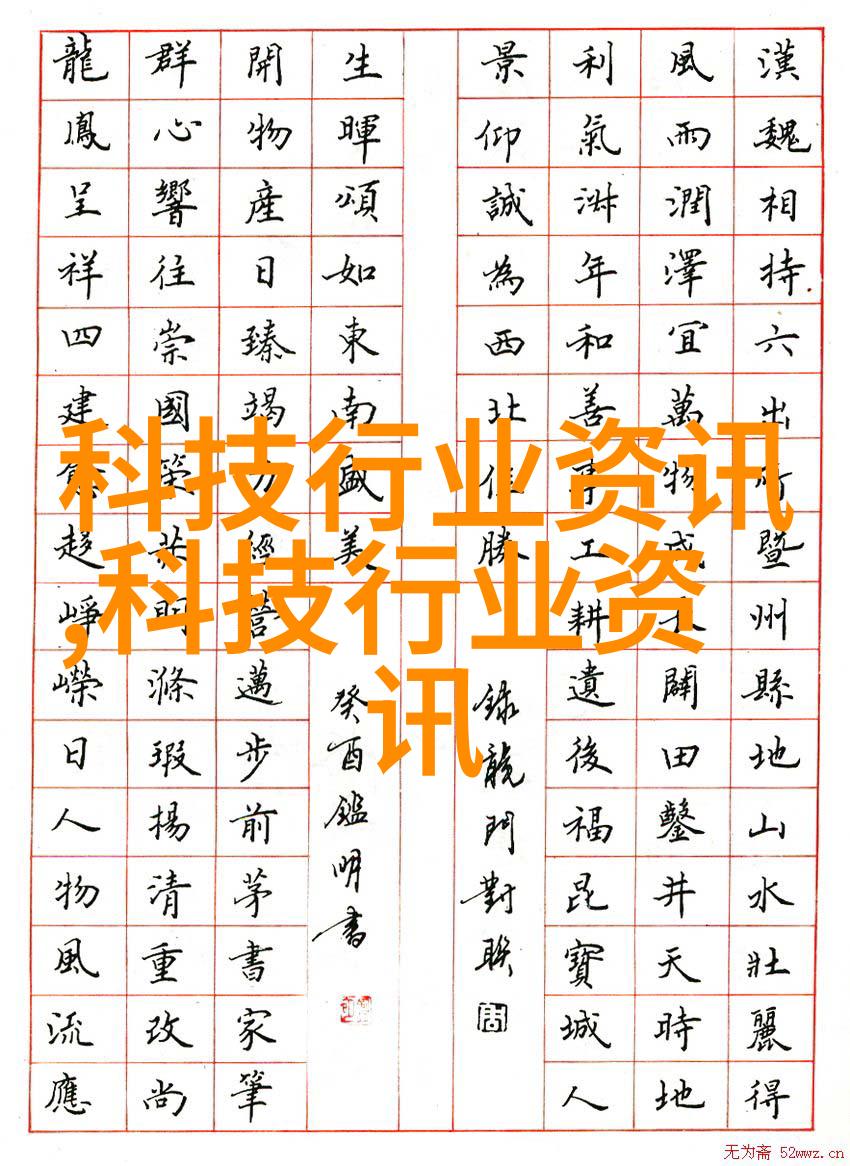 科技行业资讯
,科技行业资
讯
漢魏相持六出所暨州縣地山水壯麗得
風雨潤澤宜萬物咸闢田鑿井天時地
利氣年和善事工耕遺後福昆寶城人
景仰誠為西北佳勝
錄龍門對聯
生暉頌如東南盛美
癸酉鑑明書
開物產日臻竭力經營邁步前茅書家筆
群心響往崇國榮共明滌瑕揚清重改尚
龍鳳呈祥四建愈趨崢嶸日人物風流應
无为斋 52wwz.cn